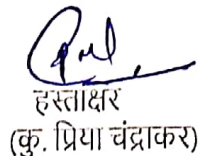 हस्ताक्षर
(कु. प्रिया चंद्राकर)